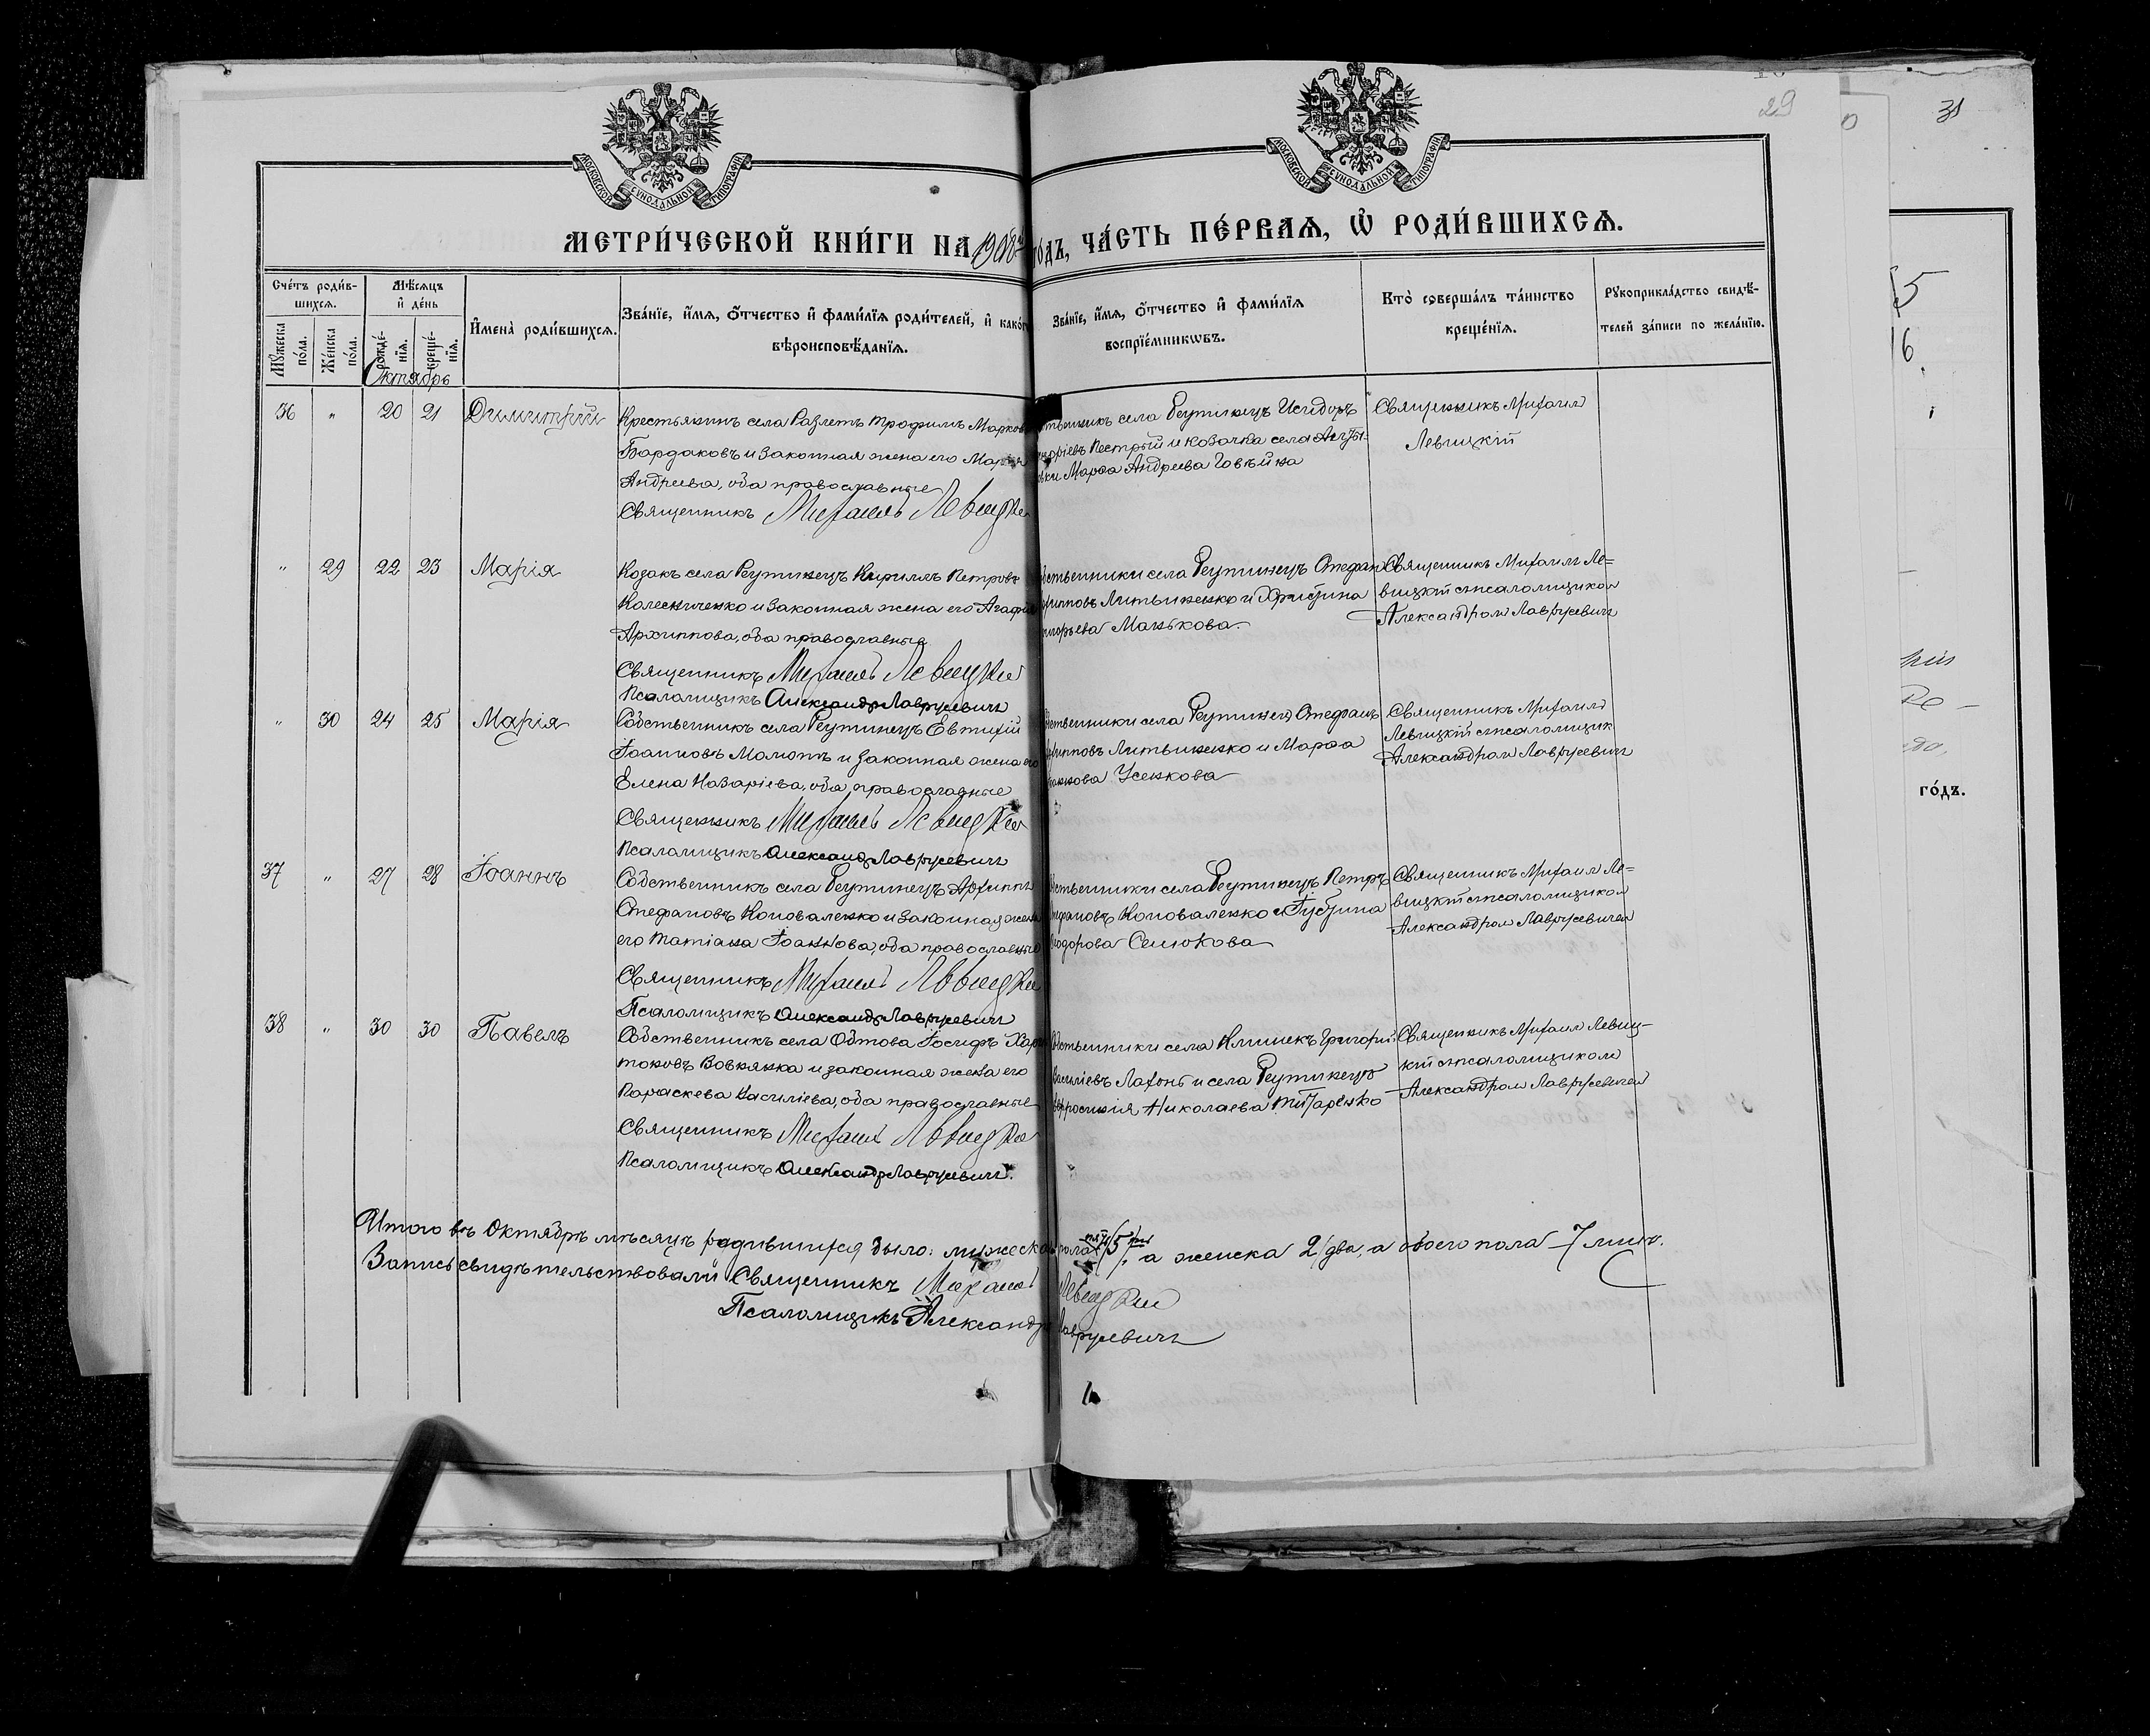 МОСКОВСКОЙ СѴНОДАЛЬНОЙ ТИПОГРАФІИ
МОСКОВСКОЙ СѴНОДАЛЬНОЙ ТИПОГРАФІИ
29
31
МЕТРИ́ЧЕСКОЙ КНИ́ГИ НА 1908 ГОДЪ, ЧА́СТЬ ПЕ́РВАѦ, Ѽ РОДИ́ВШИХСѦ.
Сче́тъ роди́в-
шихсѧ.
Мѣ́сѧцъ
и҆ де́нь
И҆мена̀ роди́вшихсѧ.
Зва́нїе, и҆́мѧ, ѻ҆́тчество и҆ фами́лїѧ роди́телей, и҆ како́г
вѣроисповѣ́данїѧ.
Зва́нїе, и҆́мѧ, ѻ҆́тчество и҆ фами́лїѧ
воспрїе́мникѡвъ.
Кто̀ соверша́лъ та́инство
креще́нїѧ.
Рꙋкоприкла́дство свидѣ́-
телей за́писи по жела́нїю.
Мꙋ́жеска
по́ла.
Же́нска
по́ла.
рожде́-
нїѧ.
креще́-
нїѧ.
Октябрь
36 " 20 21 Димитрій
Крестьянинъ села Разлетъ Трофимъ Марков
Бардаковъ и законная жена его Марѳа
Андреева, оба православные
Священникъ Михаилъ Левицкій
твенникъ села Реутинецъ Исидоръ
горіевъ Пестрый и козачка села
вки Марѳа Андреева Говѣйна
Священникъ Михаилъ
Левицкій
" 29 22 23 Марія
Козакъ села Реутинецъ Кириллъ Петровъ
Колесниченко и законная жена его Агафія
Архиппова, оба православные
Священникъ Михаилъ Левицкій
Псаломщикъ Александръ Лаврусевичъ
бственники села Реутинецъ Стефанъ
липповъ Литвиненко и Христина
игорьева Манькова
Священникъ Михаилъ Ле=
вицкій съ псаломщиком
Александром Лаврусевич
" 30 24 25 Марія
Собственникъ села Реутинецъ Евтихій
Іоанновъ Момотъ и законная жена его
Елена Назаріева, оба православные
Священникъ Михаилъ Левицкій
Псаломщикъ Александръ Лаврусевичъ
бственники села Реутинец Стефанъ
липповъ Литвиненко и Марѳа
аннова Усенкова
Священникъ Михаилъ
Левицкій съ псаломщик
Александром Лаврусевич
37 " 27 28 Іоаннъ
Собственникъ села Реутинецъ Архиппъ
Стефановъ Коноваленко и законная жена
его Татіана Іоаннова, оба православные
Священникъ Михаилъ Левицкій
Псаломщикъ Александръ Лаврусевичъ
бственники села Реутинецъ Петръ
тефановъ Коноваленко и Іустина
еодорова Семокова
Священникъ Михаилъ Ле=
вицкій съ псаломщиком
Александром Лаврусевичем
38 " 30 30 Павелъ
Собственникъ села Обтова Іосифъ Хари
тоновъ Вовнянка и законная жена его
Параскева Василіева, оба православные
Священникъ Михаилъ Левицкій
Псаломщикъ Александръ Лаврусевичъ.
бственники села Клишекъ Григорій
Василіевъ Лахонь и села Реутинецъ
вфросинія Николаева Титаренко
Священникъ Михаилъ Левиц-
кій съ псаломщиком
Александром Лаврусевичем
Итого въ Октябрѣ мѣсяцѣ родившихся было: мужеска пола 5/пять/, а женска 2/два, а обоего пола 7 лицъ.
Запись свидѣтельствовали Священникъ Михаилъ Левицкій
Псаломщикъ Александръ Лаврусевичъ
5
16.
го́дъ.